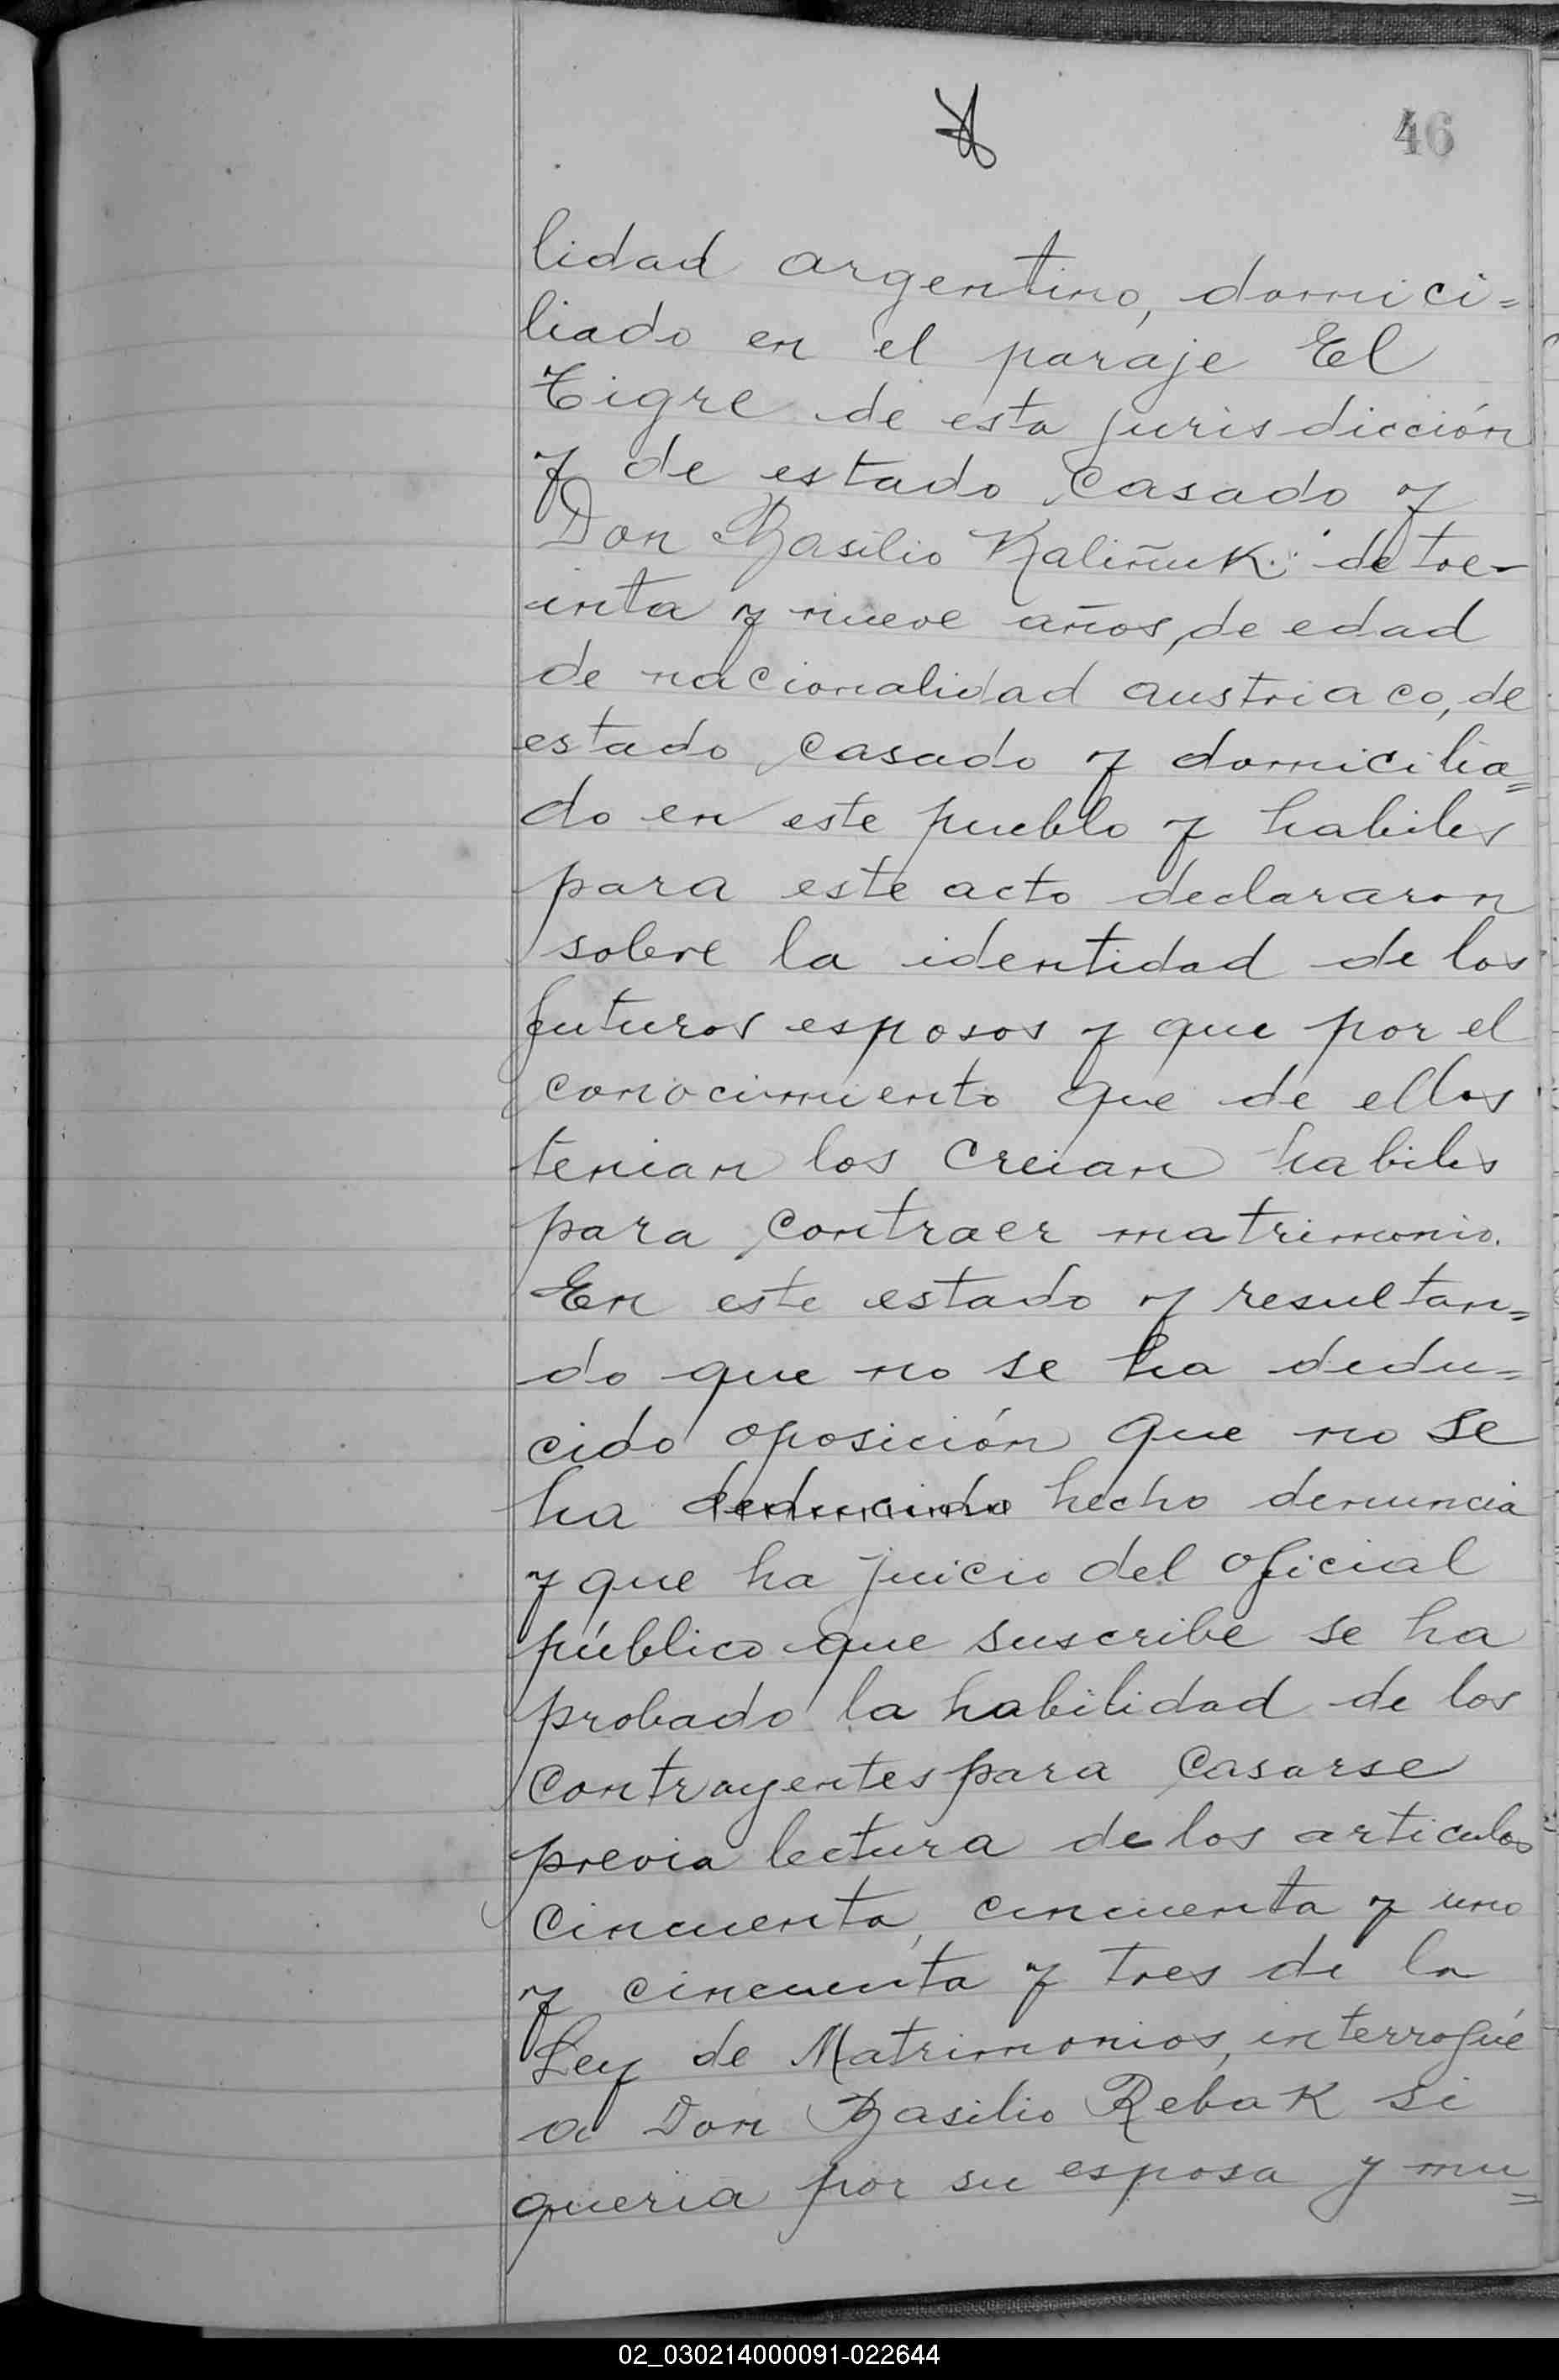 46
lidad argentino, domici=
liado en el paraje El
Tigre de esta jurisdicción
y de estado casado y
Don Basilio Kaliñuk de tre-
inta y nueve años, de edad
de nacionalidad austriaco, de
estado casado y domicilia=
do en este pueblo y habiles
para este acto declararon
sobre la identidad de los
futuros esposos y que por el
conocimiento que de ellos
tenian los creian habiles
para contraer matrimonio.
En este estado y resultan=
do que no se ha dedu=
cido oposición que no se
ha deducido hecho denuncia
y que ha juicio del oficial
público que suscribe se ha
probado la habilidad de los
contrayentes para casarse
previa lectura de los articulos
cincuenta, cincuenta y uno
y cincuenta y tres de la
Ley de Matrimonios, interrogué
a Don Basilio Rebak si
queria por su esposa y mu=
02_030214000091-022644